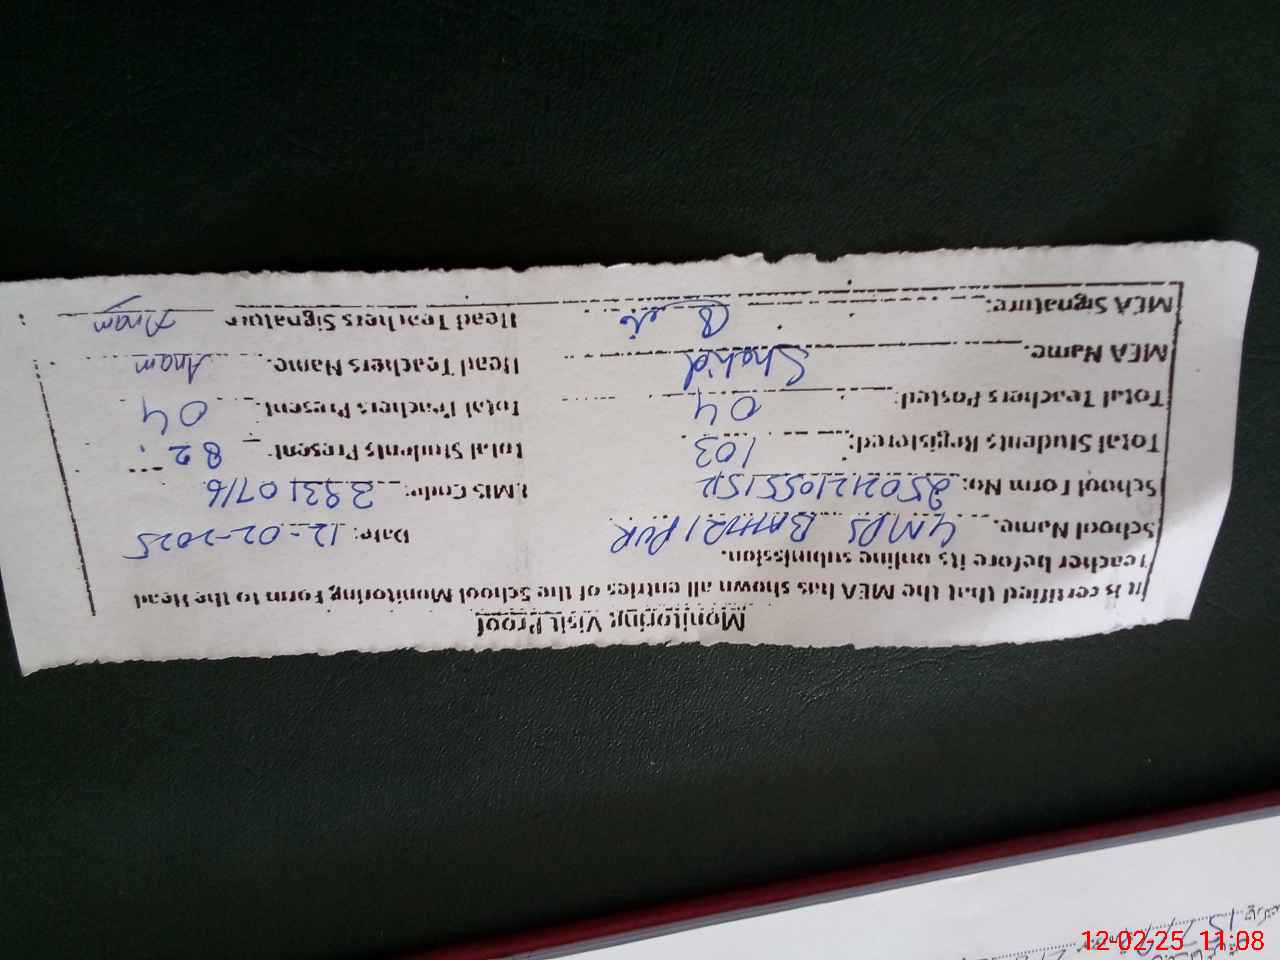 Monitoring Visit Proof
It is certified that the MEA has shown all entries of the School Monitoring Form to the Head
Teacher before its online submission.
School Name. GMPS Date: 12-02-2025
School Form No: EMIS Code: 38310716
Total Students Registered: 103 Total Students Present 82
Total Teachers Posted: 04 Total Teachers Present 04
MEA Name. Shahid Head Teachers Name. Anam
MEA Signature: Head Teachers Signature Anam
12-02-25 11:08